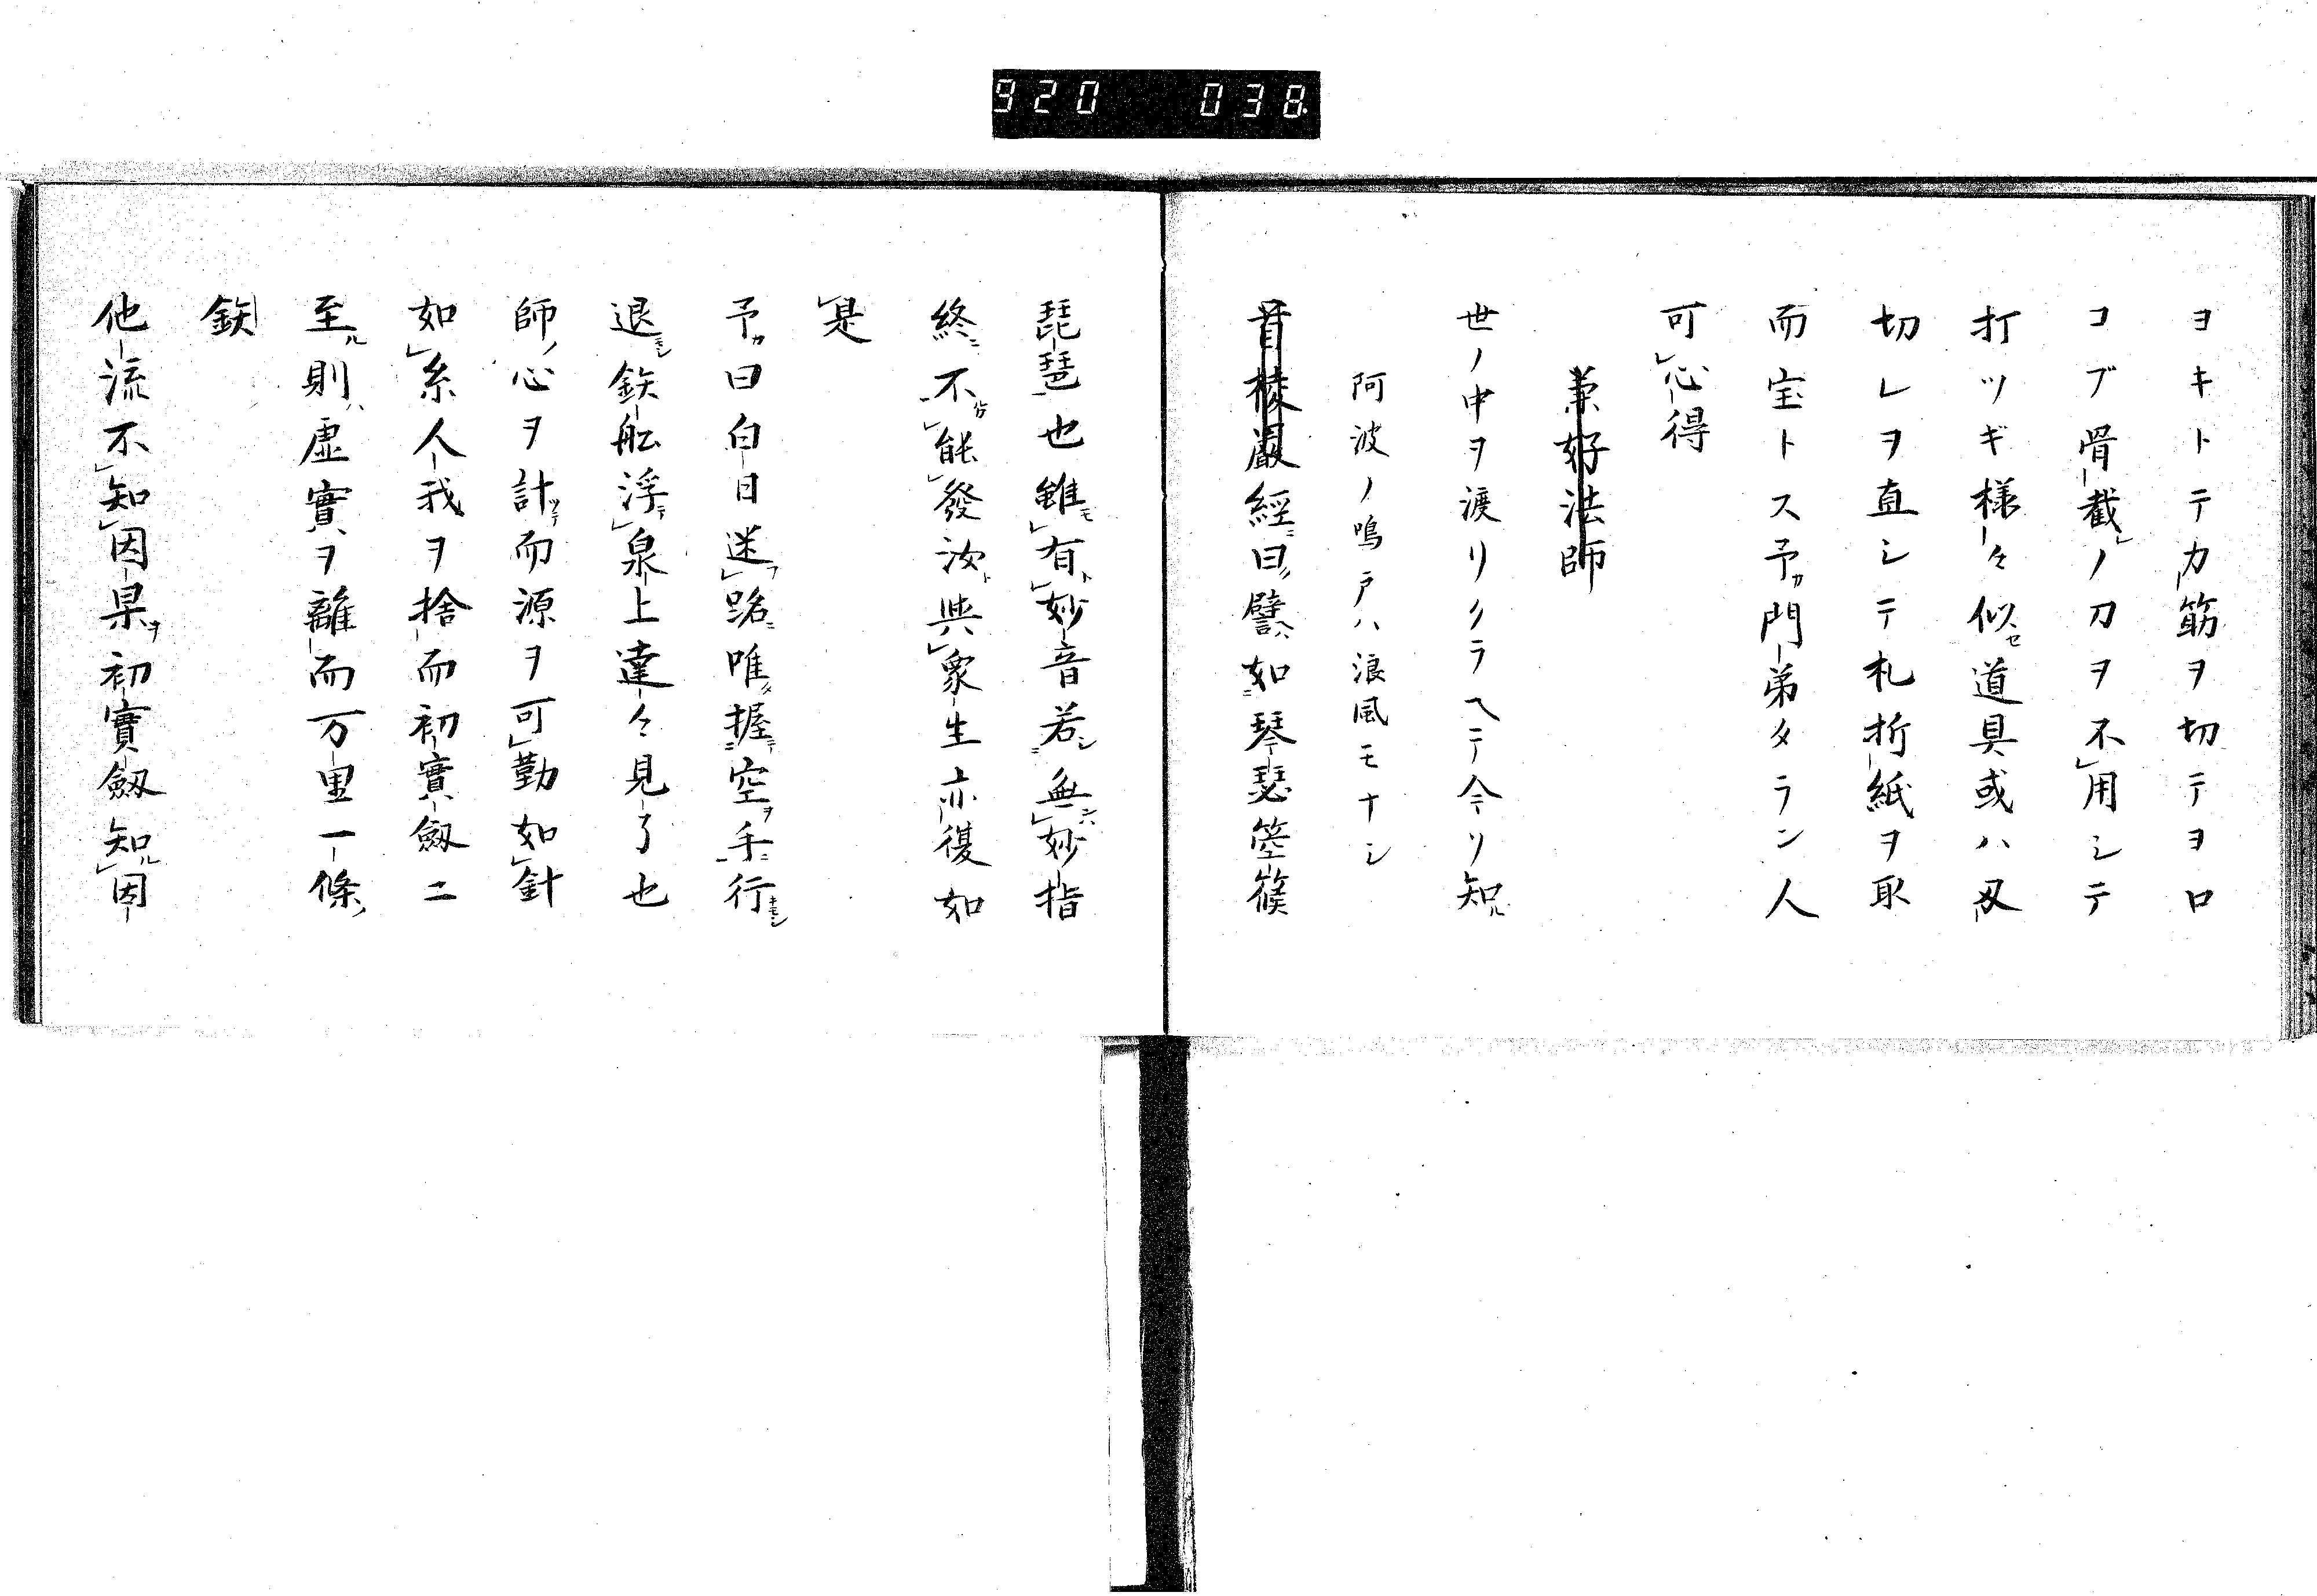 920 038
ヨキトテカ筋ヲ切テヨロ
コブ骨截ノ刀ヲ不用シテ
打ツギ様々似セ道具或ハ刄
切レヲ直シテ札折紙ヲ取
而宝トス予カ門弟タラン人
可心得
兼好法師
世ノ中ヲ渡リクラヘテ今リ知ル
阿波ノ鳴戸ハ浪風モナシ
首楞嚴經ニ曰ク譬ヘハ如ニ琴瑟箜篌
琵琶也雖モ有ト妙音若シ無ニハ妙指
終ニ不能發汝ト與衆生亦復如
是
予カ曰白日迷フ路ニ唯タ握テ空ヲ手ニ行
退モシ鉄舩浮テ泉上達々見了也
師ノ心ヲ計ツテ而源ヲ可勤如針
如糸人我ヲ捨而初實劔ニ
至ル則ハ虚實ヲ離而万里一條ノ
鉄
他流不知因果ヲ初實劔知ル因